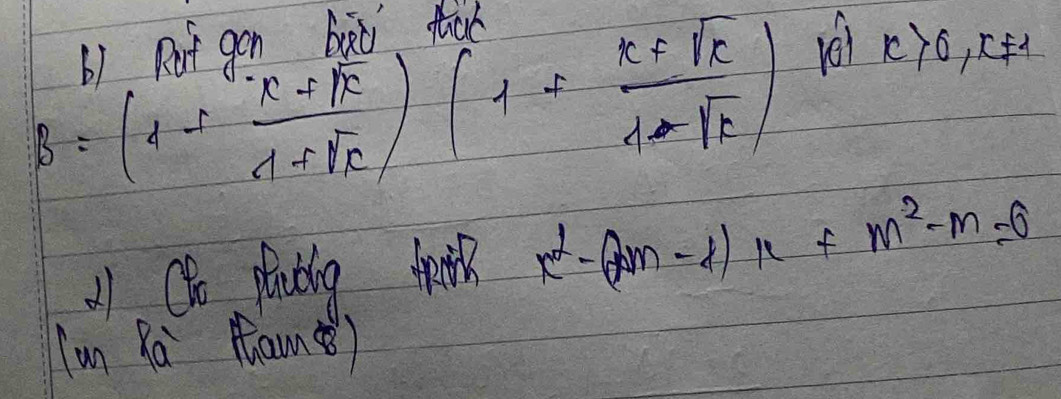 b) Rút gọn biểu thức
B = (1 + (x + √x)/(1 + √x)) (1 + (x + √x)/(1 - √x)) với x > 0, x ≠ 1
2) Cho phương trình x² - (2m - 1) x + m² - m = 0
(m là tham số)